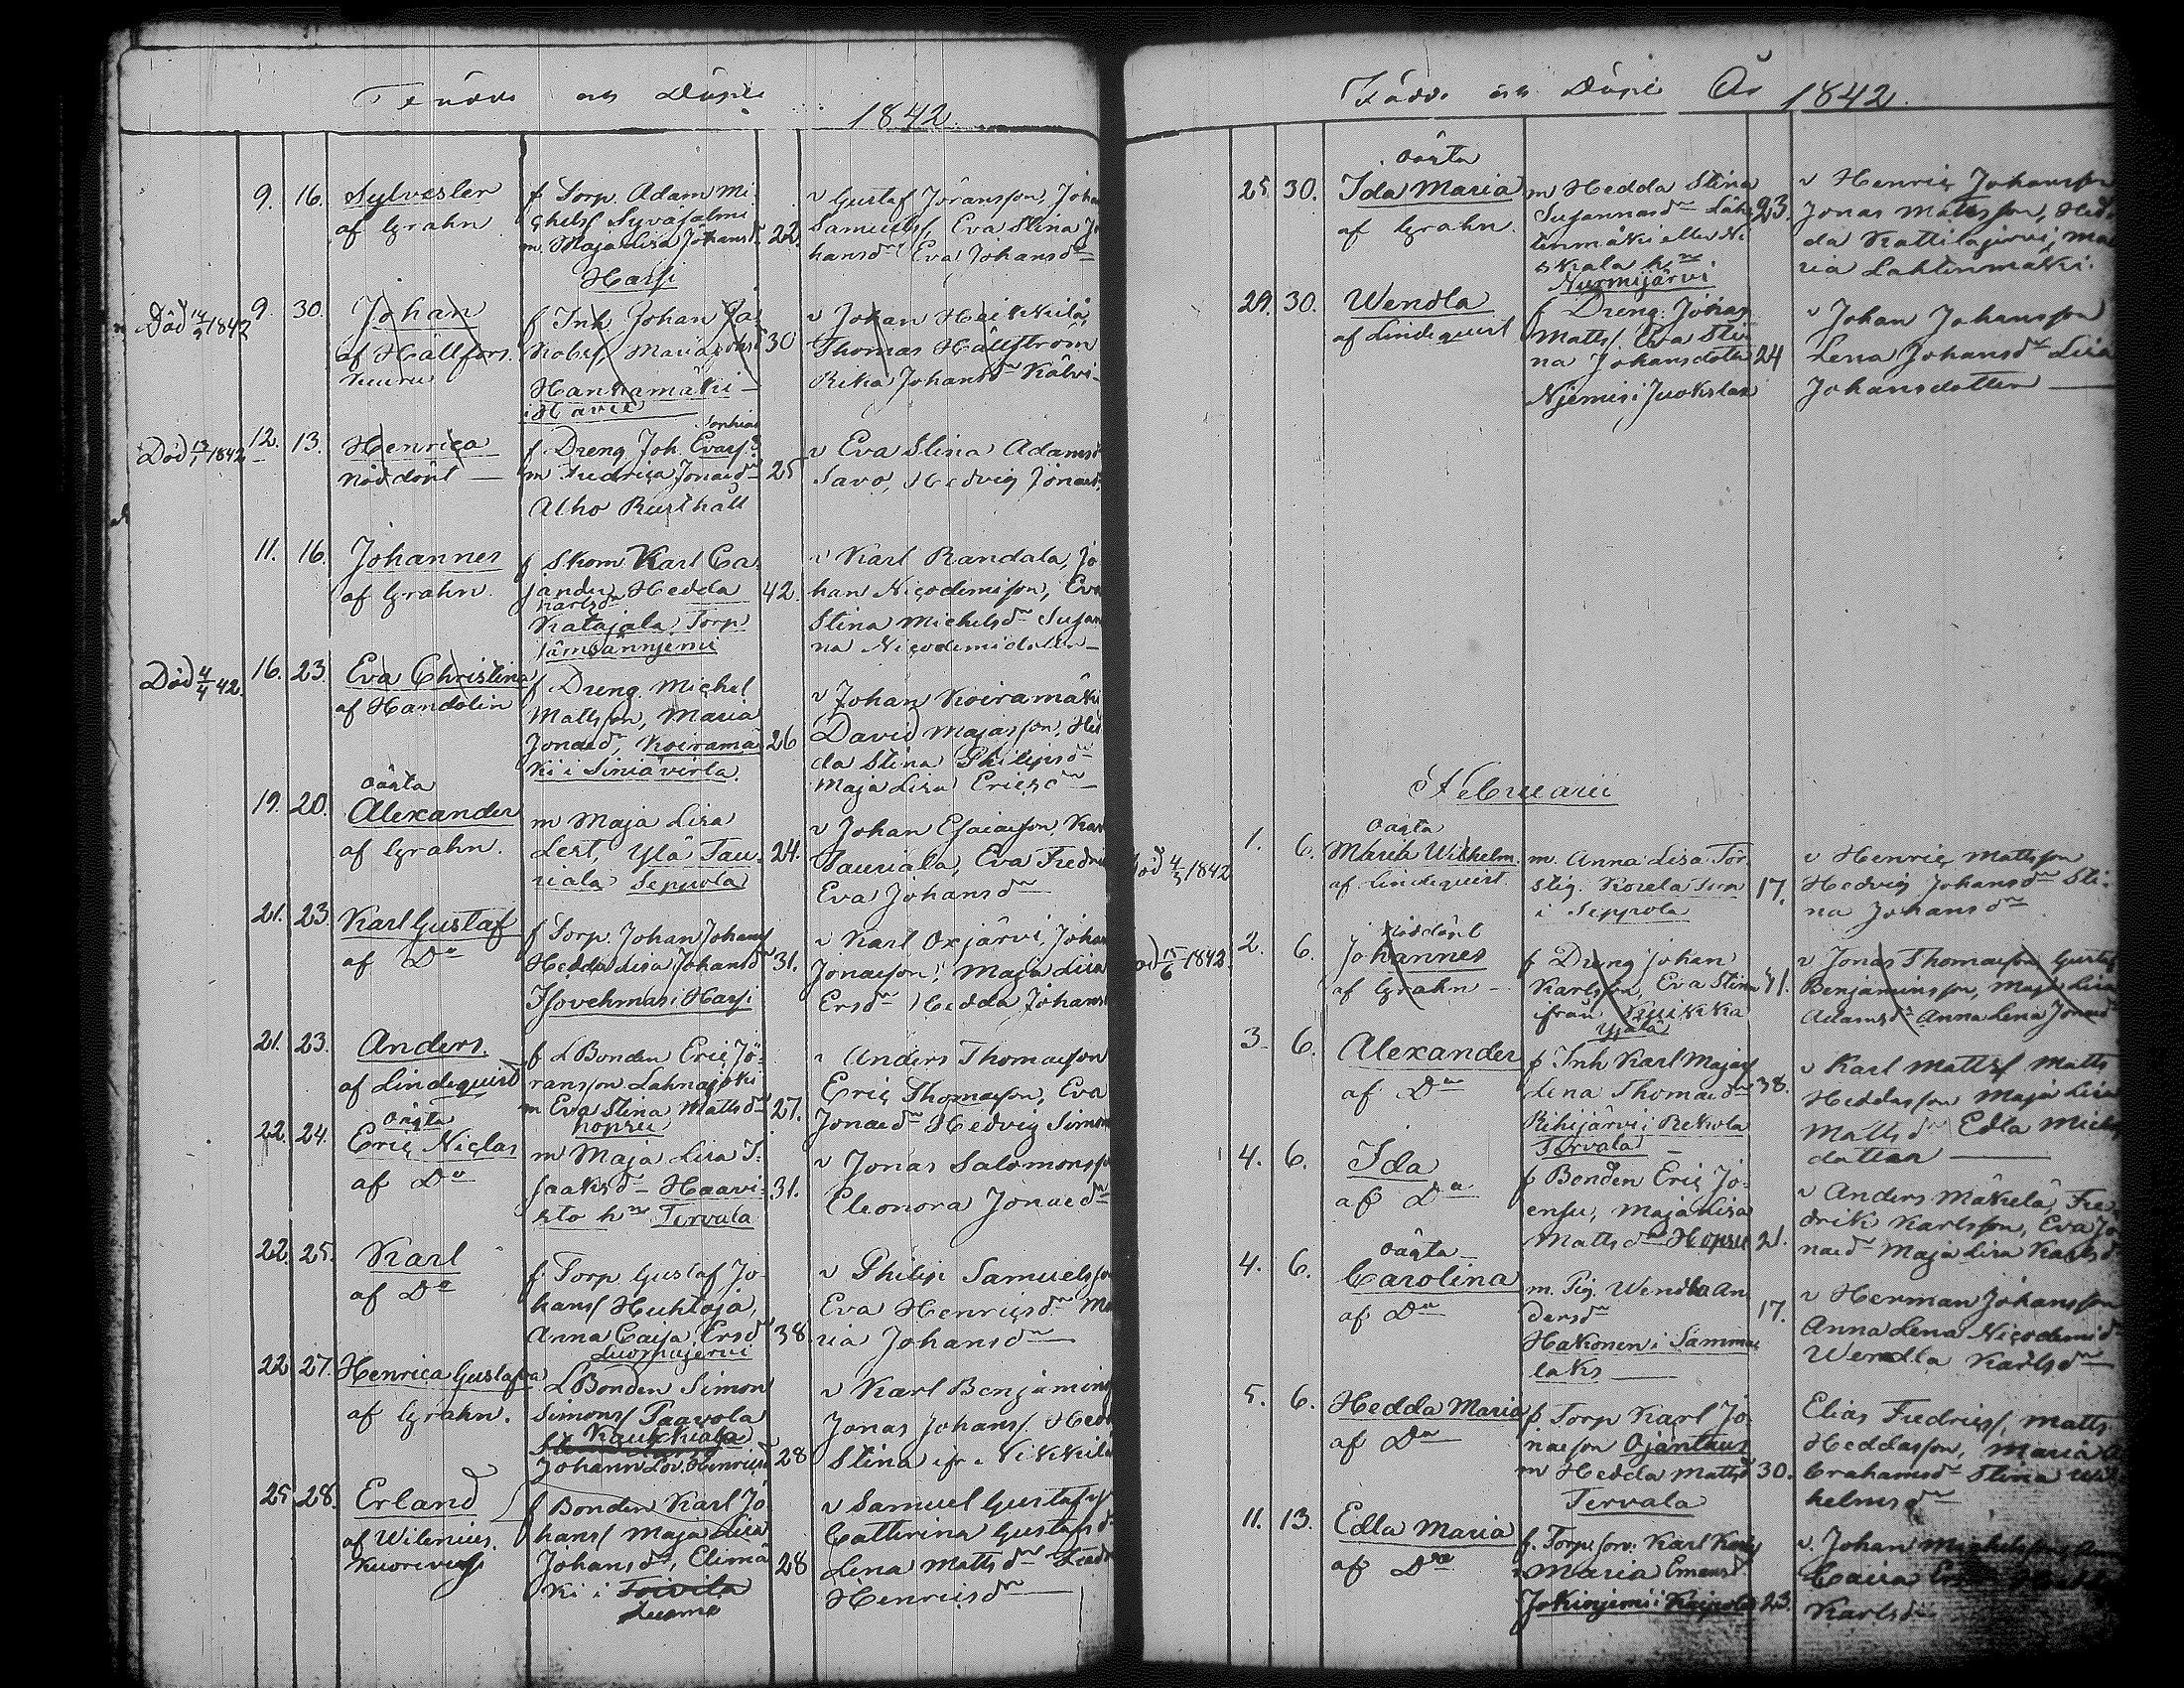 Födde och Döpte
1842.
9. 16. Sylvester
af Grahn
f Torp. Adam Mi
chels/ Syväsalmi
m. Maja Lisa Johansdr 22.
Harsi
v Gustaf Jöransson, Joha
Samuels/, Eva Stina Jo
hansdr Eva Johansdr
Död 14/5 1842
9. 30. Johan
af Hällfors.
Kuuru
f Inh Johan Ja
kobs/, Maria 30
Hankamäki
v Johan Heikkilä
Thomas Hällström
Rika Johansdr Kälvi
Död 13/1 1842
12. 13. Henrica
nöddöpt
f. Dreng Joh. Evas/
m. Fredrica Jonaedr 25
Alho Rusthåll
v Eva Stina Adamsd
Savo, Hedvig Jonaed
11. 16. Johannes
af Grahn.
f Skom. Karl Ca
jander Hedda 42.
Karlsdr
Katajala Torp
Jämsännjemi
v Karl Randala, Jo
han Nicodemisson, Eva
Stina Michelsdr Susan
na Nicodemidotter
Död 4/4 42.
16. 23. Eva Christina
af Handolin
f Dreng. Michel
Mattsson, Maria
Jonaedr, Koiramä 26
ki i Siniävirta.
v Johan Koiramäki
David Majasson, Hed
da Stina Philipsdr
Maja Lisa Ericsdr
oägta
19. 20. Alexander
af Grahn.
m Maja Lisa
Lert, Ylä Tau- 24.
riala Seppola
v Johan Esaiasson, Karl
Tauriala, Eva Fredri
Eva Johansdr
21. 23. Karl Gustaf
af Do
f Torp. Johan Johans/
Hedda Lisa Johansdr 31.
Isovehmas i Harsi
v Karl Oxjärvi, Johan
Jonaesson, Maja Lisa
Ersdr Hedda Johans
21. 23. Anders.
af Lindequist
f LBonden Eric Jö-
ransson Lahnajoki
m Eva Stina Mattsdr 27.
Hopsu
v Anders Thomaeson
Eric Thomaeson, Eva
Jonaedr Hedvig Simon
oägta
22. 24. Eric Niclas
af Do
m Maja Lisa I-
saaksdr Haavi- 31.
sto hn Tervala
v Jonas Salomonsso
Eleonora Jonaedr
22. 25. Karl
af Do
f Torp Gustaf Jo
hans/ Huhtoja,
Anna Caisa Ersdr 38
v Philip Samuelsso
Eva Henricsdr Ma
ria Johansdr
22 27. Henrica Gustafva
af Grahn.
LBonden Simon
Simons/ Paavola
Johanna Lov. Henricsd 28
v Karl Benjamins
Jonas Johans/ Hed
Stina ifr. Nikkilä
25. 28. Erland
af Wilenius.
Kuorevesi
f Bonden Karl Jo
hans/ Maja Lisa
Johansdr, Elimä 28
ki i Toivila
Luomo
v Samuel Gustafs/
Catharina Gustafsdr
Lena Mattsdr Fredr
Henricsdr
Födde och Döpte År 1842.
oägta
25. 30. Ida Maria
af Grahn.
m Hedda Stina
Susannasdr Lah- 23.
tenmäki eller Ni
skala hn
Nurmijärvi
v Henric Johansson
Jonas Mattsson, Hed
da Kattilajervi, Ma
ria Lahtenmäki.
29. 30. Wendla
af Lindequist
f Dreng. Johan
Matts/, Eva Sti
na Johansdotter 24
Njemis i Juokslax
v Johan Johansson
Lena Johansdr Lisa
Johansdotter
Februarii
Död 4/5 1842
oägta
1. 6. Maria Wilhelm.
af Lindequist.
m. Anna Lisa Tor
stig. Kosela Torp 17.
i Seppola
v Henric Mattsson
Hedvig Johansdr Sti-
na Johansdr
nöddöpt
2. 6. Johannes
af Grahn
f Dreng Johan
Karlsson, Eva Stina 41.
ifrån
v Jonas Thomaeson Gustaf
Benjaminsson, Maja Lisa
Adamsdr Anna Lena Jonaed
3 6. Alexander
af Do
f Inh Karl Majas/
Lena Thomaedr 38.
Kihijärvi i Rekola
Tervala
v Karl Matts/ Matts
Heddasson Maja Lisa
Mattsdr Edla Michs
dotter
4. 6. Ida
af Do
f Bonden Eric Jo-
ensu, Maja Lisa
Mattsdr Hopsu 21.
v Anders Mäkelä, Fre
drik Karlsson, Eva Jo
naedr Maja Lisa Karlsd
oägta
4. 6. Carolina
af Do
m. Pig. Wendla An
dersdr 17.
Hakonen i Samma
laks
v Herman Johansson
Anna Lena Nicodemid
Wendla Karlsdr
5. 6. Hedda Maria
af Do
f Torp Karl Jo
naeson Ojantaus
m Hedda Mattsd 30.
Tervala
Elias Fredrics/, Matts
Heddasson, Maria A
brahamsdr Stina Wil
helmsdr
11. 13. Edla Maria
af Do
f. Torp. son: Karl Karls/
Maria Emansd
Jokinjemi i Kaipola 23.
v. Johan Michelsson
Caisa
Karlsdr